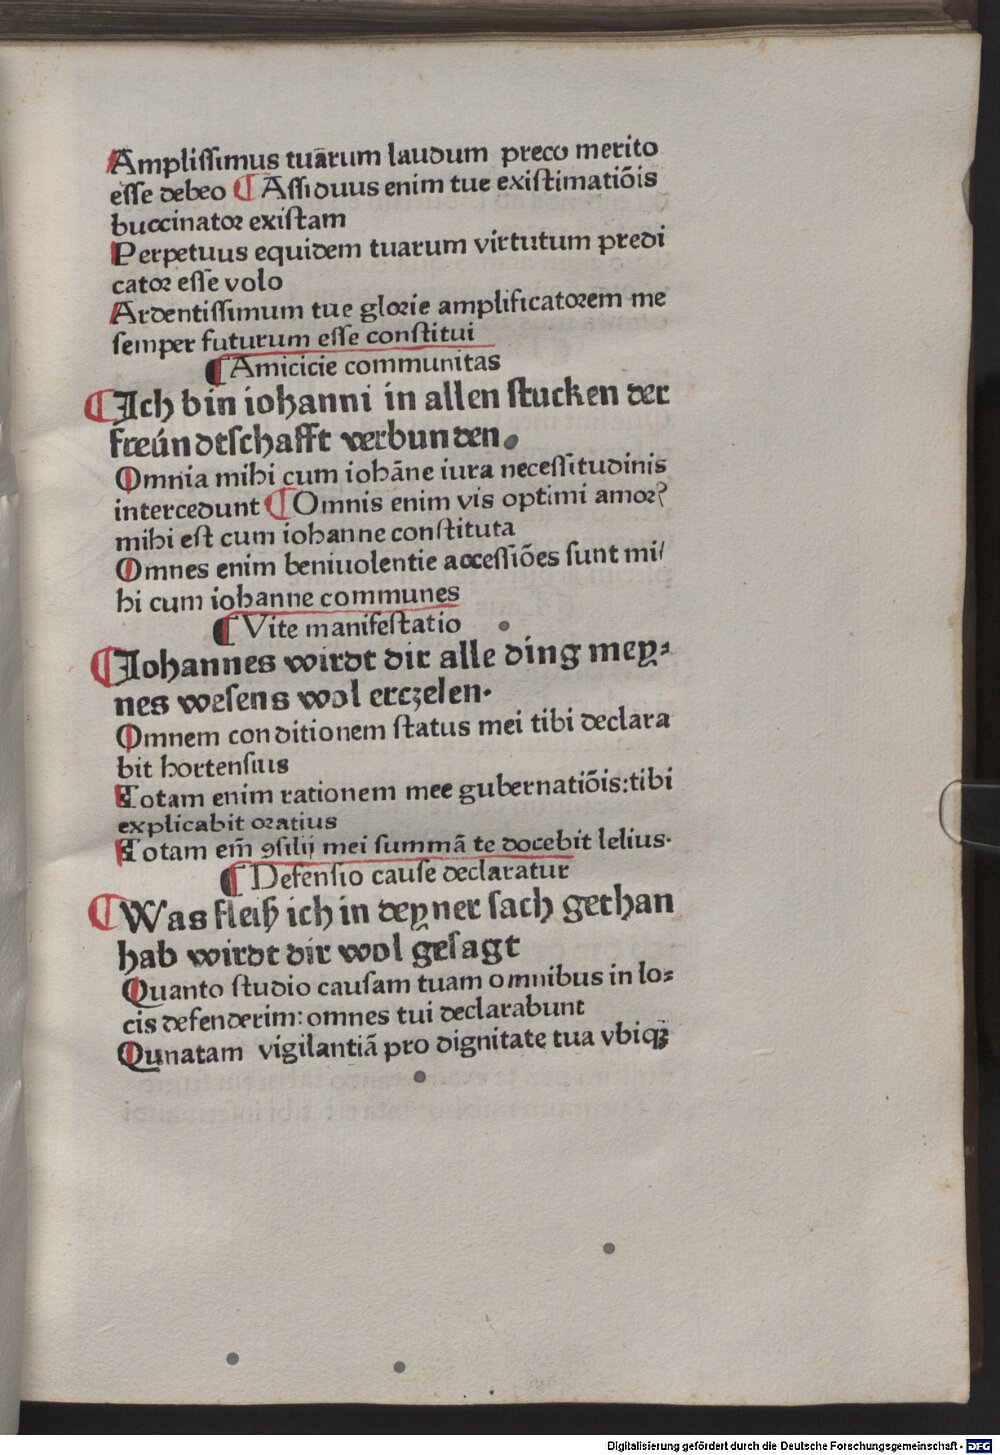 Ampliſſimus tuārum laudum preco merito
eſſe debeo ¶ Aſſiduus enim tue exiſtimatiōis
buccinatoꝛ exiſtam
Perpetuus equidem tuarum virtutum predi
catoꝛ eſſe volo
Ardentiſſimum tue gloꝛie amplificatoꝛem me
ſemper futurum eſſe conſtitui
¶ Amicicie communitas
¶ Ich bin iohanni in allen ſtucken der
freúndtſchafft verbunden.
Omnia mihi cum iohāne iura neceſſitudinis
intercedunt ¶ Omnis enim vis optimi amoꝛꝭ
mihi eſt cum iohanne conſtituta
Omnes enim beniuolentie acceſſiōes ſunt mi/
hi cum iohanne communes
¶ Vite manifeſtatio
¶ Iohannes wirdt dir alle ding mey⸗
nes weſens wol erczelen.
Omnem conditionem ſtatus mei tibi declara
bit hortenſius
Totam enim rationem mee gubernatiōis: tibi
explicabit oꝛatius
Totam em̄ ꝯſilij mei ſummā te docebit lelius.
¶ Defenſio cauſe declaratur
¶ Was fleiß ich in deyner ſach gethan
hab wirdt dir wol geſagt
Quanto ſtudio cauſam tuam omnibus in lo⸗
cis defenderim: omnes tui declarabunt
Qunatam vigilantiā pro dignitate tua vbiqꝫ
Digitalisierung gefördert durch die Deutsche Forschungsgemeinschaft - DFG